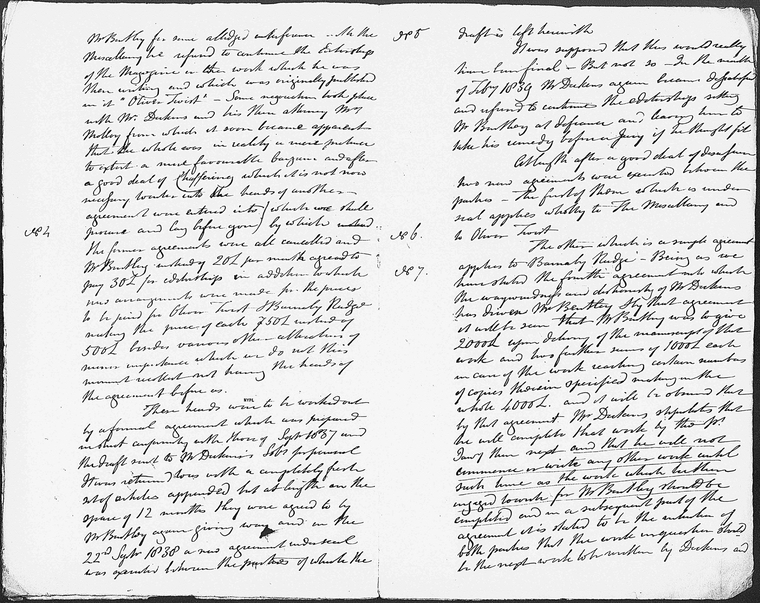 Mr Bentley for some alledged interference in the
Miscellany he refused to continue the Editorship
of the Magazine or the work which he was
then writing and which was originally published
in it "Oliver Twist" – Some negociation took place
with Mr. Dickens and his then attorney Mr
Molloy from which it soon became apparent
that the whole was in reality a mere pretence
to extort a more favourable bargain and after
a good deal of chaffering which it is not now
necessary to enter into the heads of another
agreement were entered into (which we shall
No 4 procure and lay before you) by which
the former agreements were all cancelled and
Mr Bentley instead of 20£ per month agreed to
pay 30£ for editorship in addition to which
new arrangements were made for the prices
to be paid for Oliver Twist & Barnaby Rudge
making the price of each 750£ instead of
500£ besides various other alterations of
minor importance which we do not this
moment recollect not having the heads of
the agreement before us.
These heads were to be worked out
by a formal agreement which was prepared
in strict conformity with those of Septr 1837 and
the draft sent to Mr Dickens's Solr for perusal
It was returned to us with a completely fresh
set of articles appended but at length in the
space of 12 months they were agreed to by
Mr Bentley again giving way and on the
22nd Septr 1838 a new agreement under seal
was executed between the parties of which the
No 5 draft is left herewith
It was supposed that this would really
have been final – But not so – In the month
of Feby 1839 Mr Dickens again became dissatisfied
and refused to continue the editorship setting
Mr Bentley at defiance and leaving him to
take his remedy before a Jury if he thought fit
At length after a good deal of discussion
two new agreements were executed between the
parties – The first of them which is under
seal applies wholly to The Miscellany and
No 6. to Oliver Twist
The other which is a simple agreement
No 7. applies to Barnaby Rudge – Being as we
have stated the fourth agreement into which
the waywardness and dishonesty of Mr Dickens
has driven Mr Bentley & by that agreement
it will be seen that Mr Bentley was to give
2000£ upon delivery of the manuscript of that
work and two further sums of 1000£ each
in case of the work reaching certain numbers
of copies therein specified making in the
whole 4000£. and it will be observed that
by that agreement Mr Dickens stipulates that
he will complete that work by the 1st
Jany then next and that he will not
commence or write any other work until
such time as the work which he then
engaged to write for Mr Bentley should be
completed and in a subsequent part of the
agreement it is stated to be the intention of
both parties that the work in question should
be the next work to be written by Dickens and